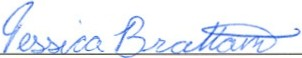 Jessica Brattam